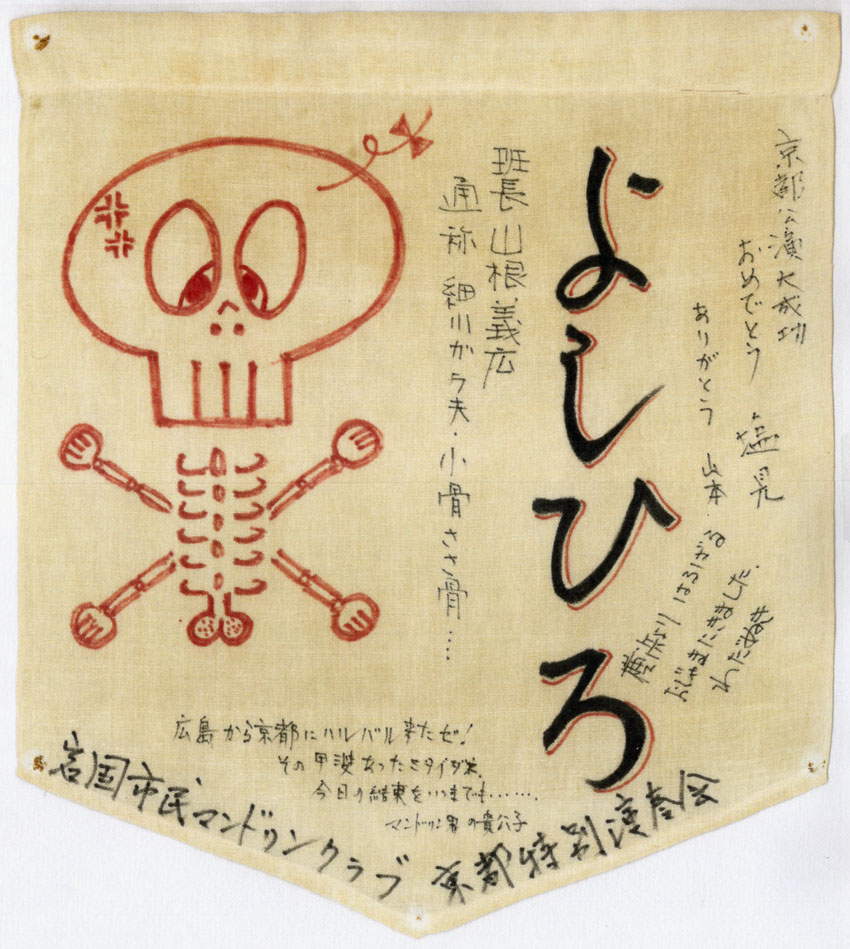 京都公演大成功
おめでとう 塩見
ありがとう 山本
はるばる
おじゃまにきました。
わだぬき
よしひろ
班長 山根義広
通称 細川ガラ夫・小骨ささ骨…
広島から京都にハルバル来たゼ!
その甲斐あったミタイダネ
今日の結束をいつまでも……
マンドリン界の貴公子
岩国市民マンドリンクラブ 京都特別演奏会